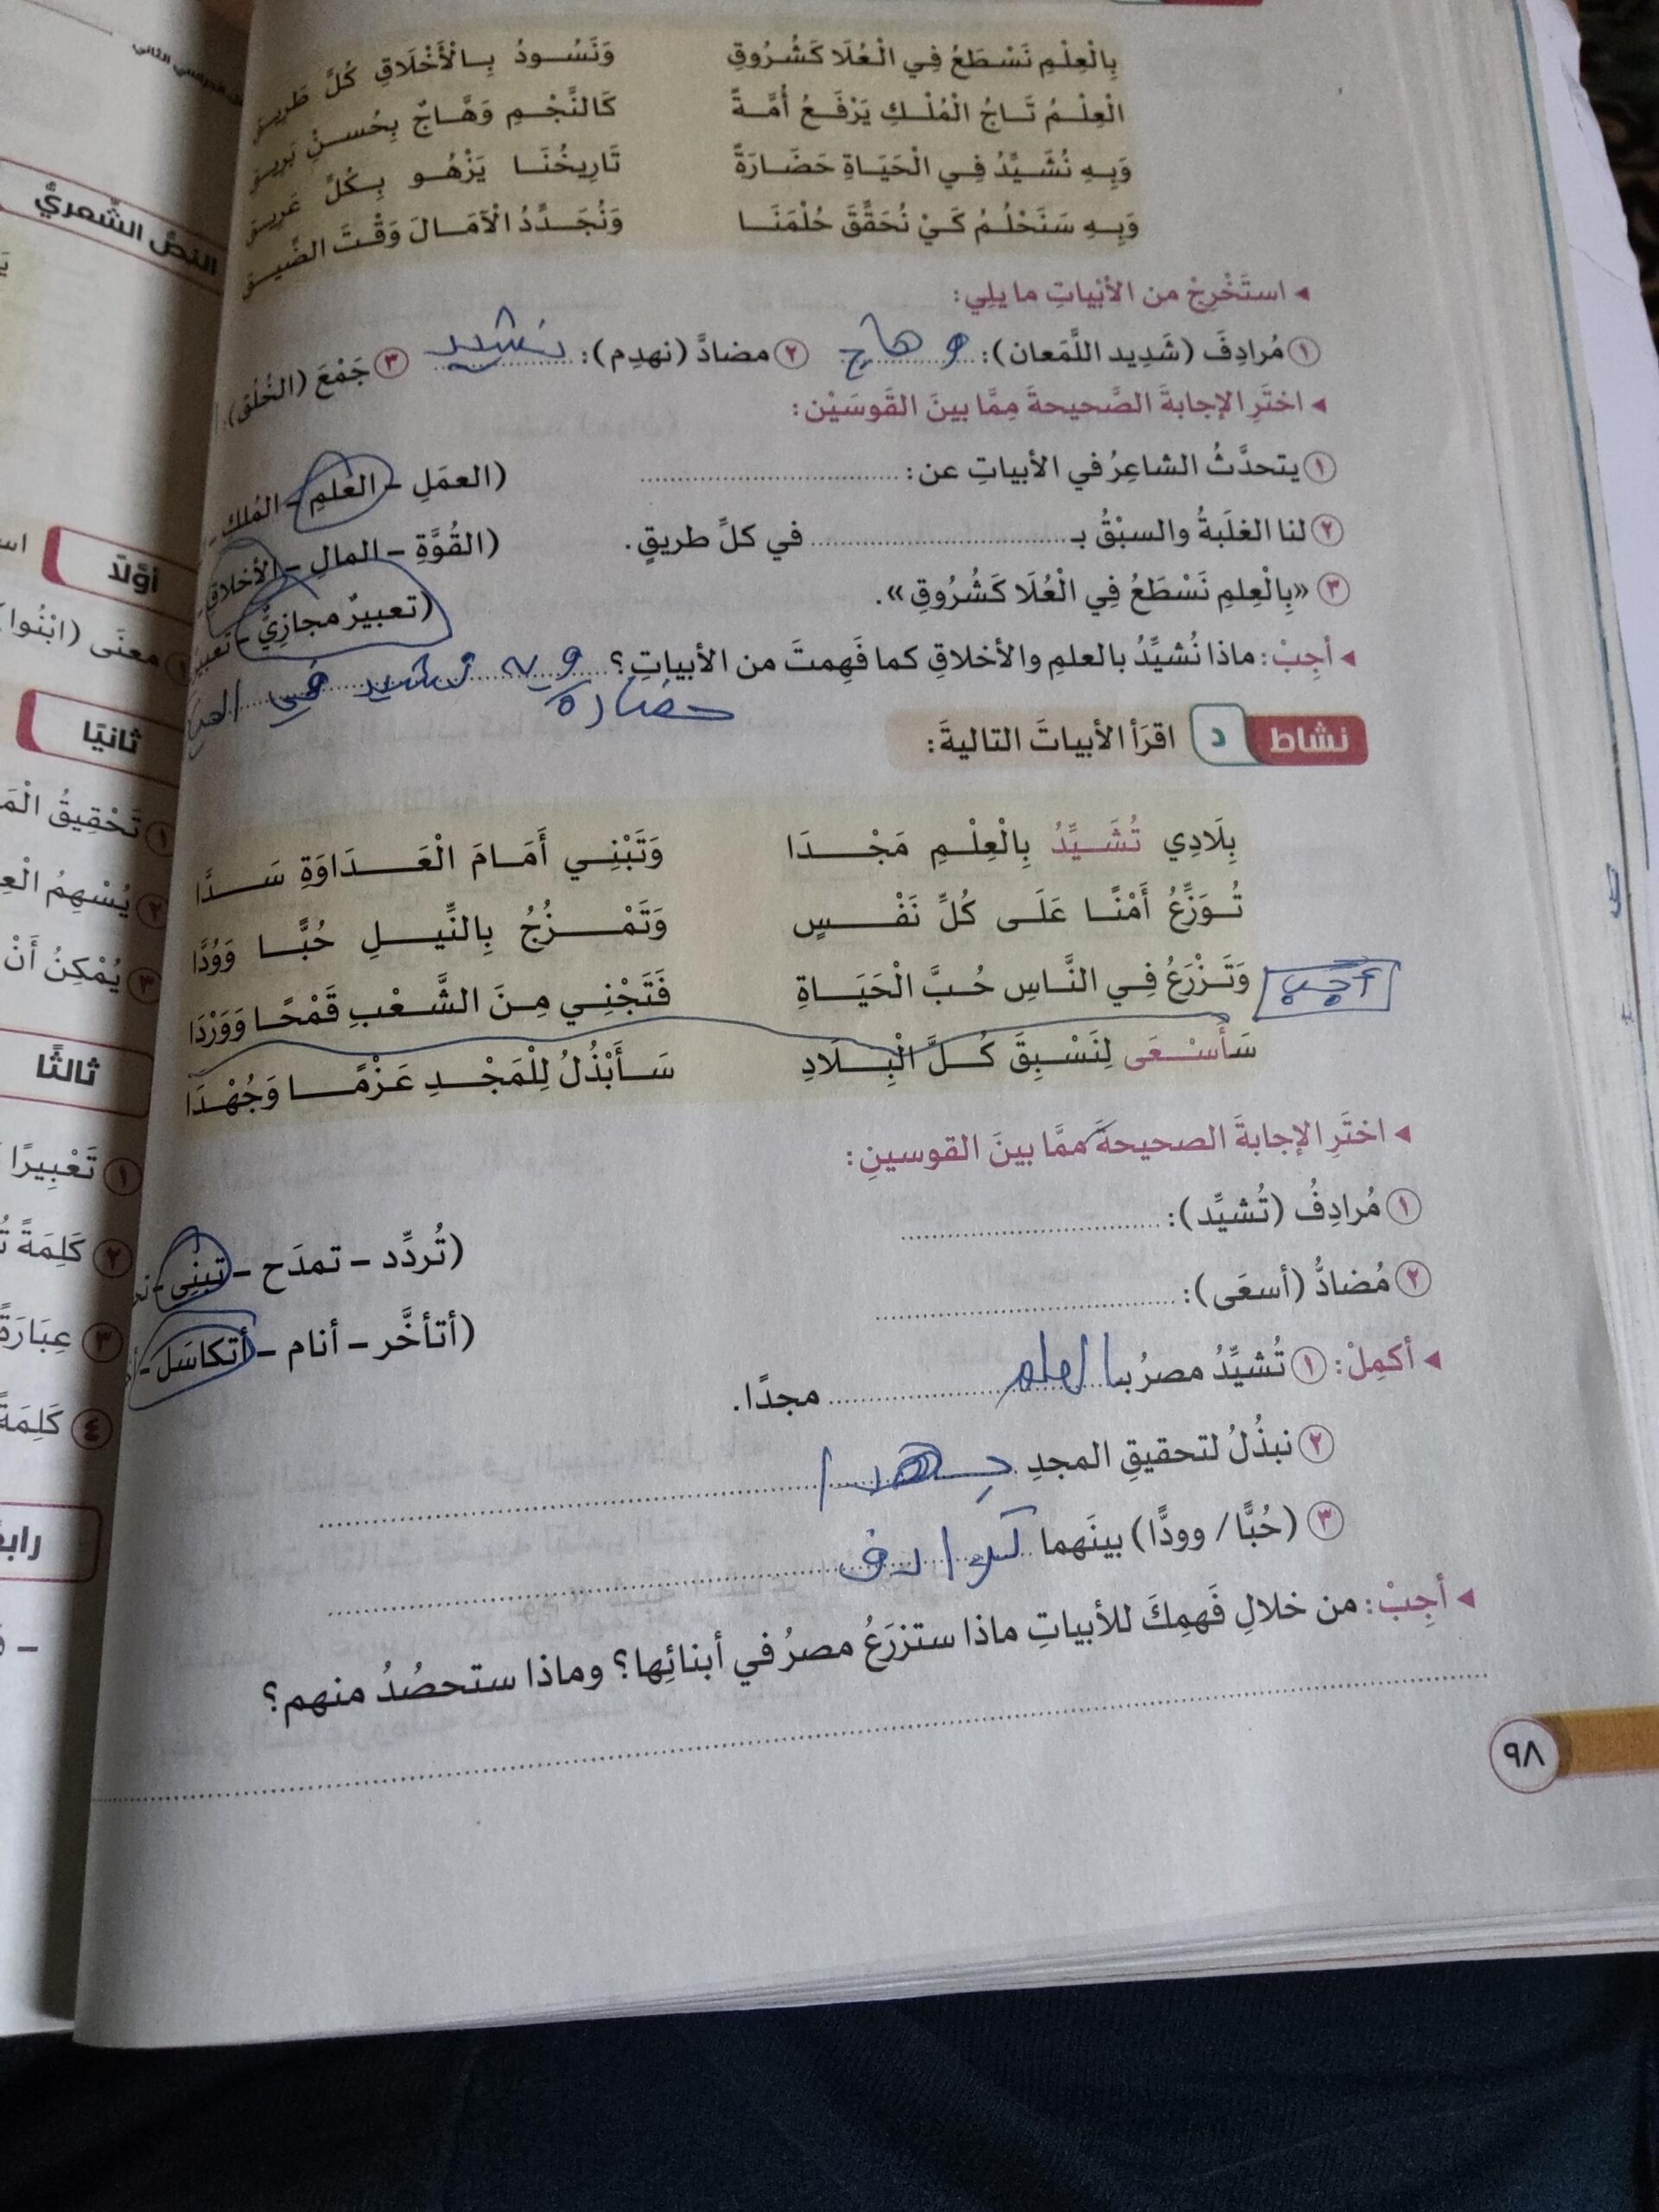 بِالْعِلْمِ نَسْطَعُ فِي الْعُلَا كَشُرُوقِ وَنَسُودُ بِالْأَخْلَاقِ كُلَّ طَرِيقِ
الْعِلْمُ تَاجُ الْمُلْكِ يَرْفَعُ أُمَّةً كَالنَّجْمِ وَهَّاجٌ بِحُسْنِ بَرِيقِ
وَبِهِ نُشَيِّدُ فِي الْحَيَاةِ حَضَارَةً تَارِيخُنَا يَزْهُو بِكُلِّ عَرِيقِ
وَبِهِ سَنَحْلُمُ كَيْ نُحَقِّقَ حُلْمَنَا وَنُجَدِّدُ الْآمَالَ وَقْتَ الضِّيقِ
◂ استَخْرِجْ من الأبْياتِ ما يلِي:
١ مُرادِفَ (شَدِيد اللَّمَعان): وهاج ٢ مضادَّ (نهدِم): نشيد ٣ جَمْعَ (الخُلُق):
◂ اختَرِ الإجابةَ الصَّحيحةَ مِمَّا بينَ القَوسَيْن:
١ يتحدَّثُ الشاعِرُ في الأبياتِ عن: (العمَلِ - العُلمِ - المُلكِ -
٢ لنا الغلَبةُ والسبْقُ بـ في كلِّ طريقٍ. (القُوَّةِ - المالِ - الأخلاقِ
٣ «بِالْعِلمِ نَسْطَعُ فِي الْعُلَا كَشُرُوقِ». (تعبيرٌ مجازِيٌّ - تعبير
◂ أجِبْ: ماذا نُشيِّدُ بالعلمِ والأخلاقِ كما فَهِمتَ من الأبياتِ؟ وبه نشيد في
حضارة
نشاط د اقرَأ الأبياتَ التاليةَ:
بِلَادِي تُشَيِّدُ بِالْعِلْمِ مَجْدَا وَتَبْنِي أَمَامَ الْعَدَاوَةِ سَدًّا
تُوَزِّعُ أَمْنًا عَلَى كُلِّ نَفْسٍ وَتَمْزُجُ بِالنِّيلِ حُبًّا وَوُدًّا
أجب وَتَزْرَعُ فِي النَّاسِ حُبَّ الْحَيَاةِ فَتَجْنِي مِنَ الشَّعْبِ قَمْحًا وَوَرْدَا
سَأَسْعَى لِنَسْبِقَ كُلَّ الْبِلَادِ سَأَبْذُلُ لِلْمَجْدِ عَزْمًا وَجُهْدَا
◂ اختَرِ الإجابةَ الصحيحةَ ممَّا بينَ القوسينِ:
١ مُرادِفُ (تُشيِّد): (تُردِّد - تمدَح - تبنِي -
٢ مُضادُّ (أسعَى): (أتأخَّر - أنام - أتكاسَل -
◂ أكمِلْ: ١ تُشيِّدُ مصرُ بـالعلم مجدًا.
٢ نبذُلُ لتحقيقِ المجدِ
٣ (حُبًّا / وودًّا) بينَهما ترادف
◂ أجِبْ: من خلالِ فَهمِكَ للأبياتِ ماذا ستزرَعُ مصرُ في أبنائِها؟ وماذا ستحصُدُ منهم؟
٩٨
النصُّ الشِّعريُّ
أوَّلًا
معنَى (ابْنُوا)
ثانيًا
١ تَحْقِيقُ
٢ يُسْهِمُ
٣ يُمْكِنُ أَنْ
ثالثًا
١ تَعْبِيرًا
٢ كَلِمَةً
٣ عِبَارَةً
٤ كَلِمَةً